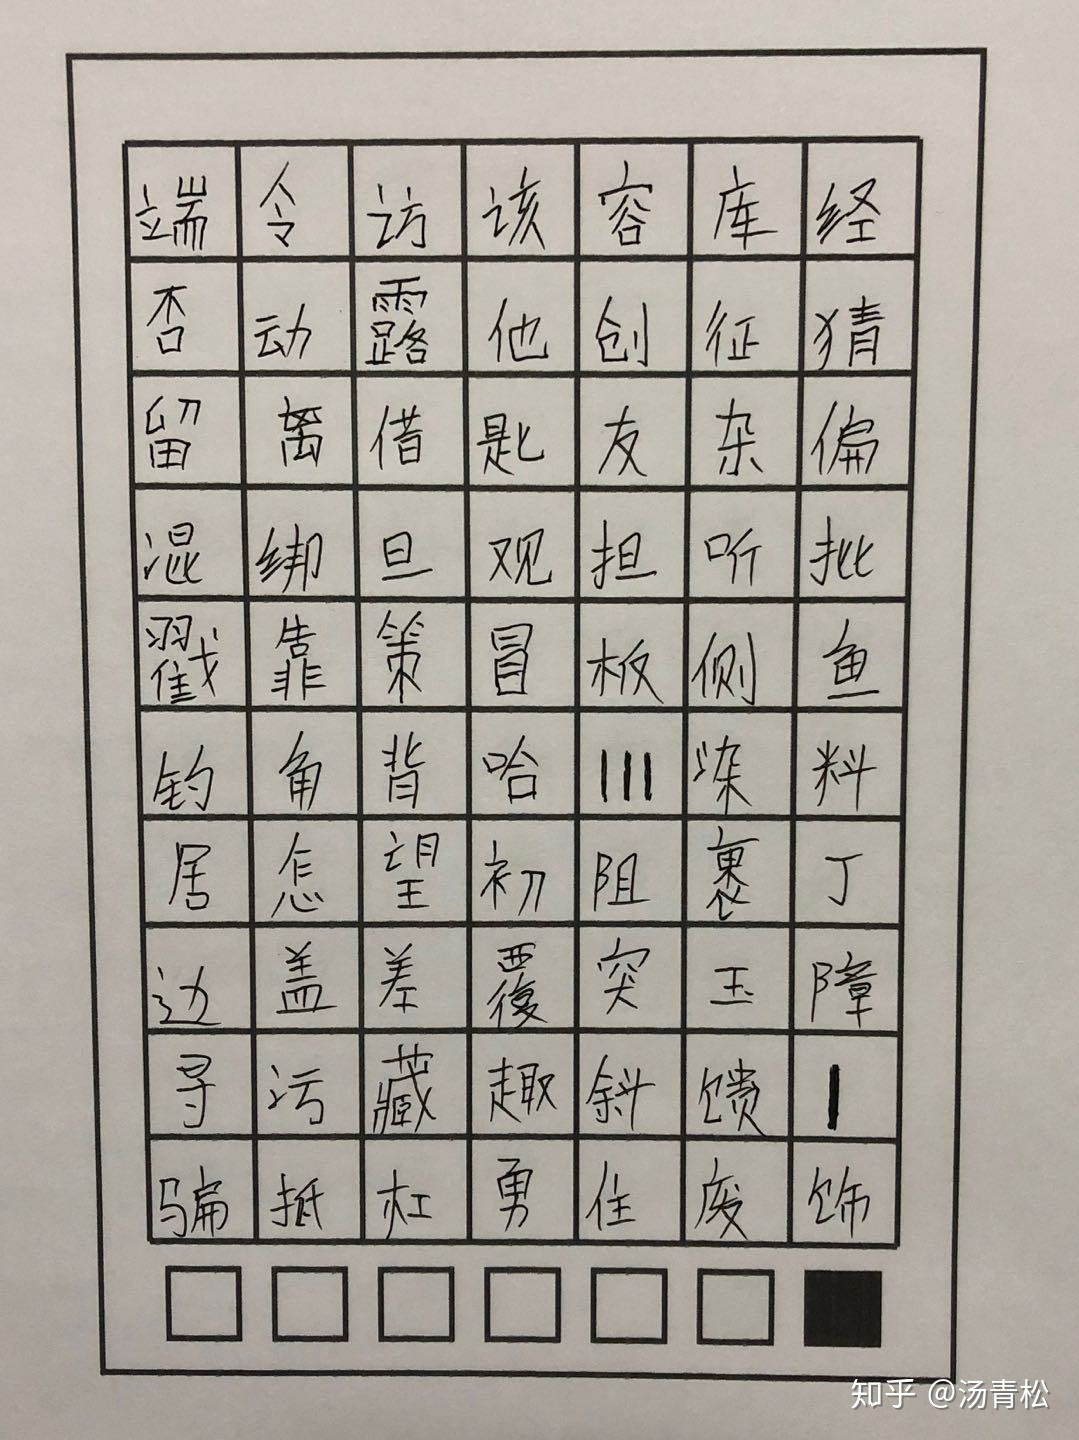 端 令 访 该 容 库 经
否 动 露 他 创 征 猜
留 离 借 匙 友 杂 偏
混 绑 旦 观 担 听 批
戳 靠 策 冒 板 侧 鱼
钓 角 背 哈 III 染 料
居 怎 望 初 阻 裹 丁
边 盖 差 覆 突 玉 障
寻 污 藏 趣 斜 馈 I
骗 抵 杠 勇 住 废 饰
知乎 @汤青松